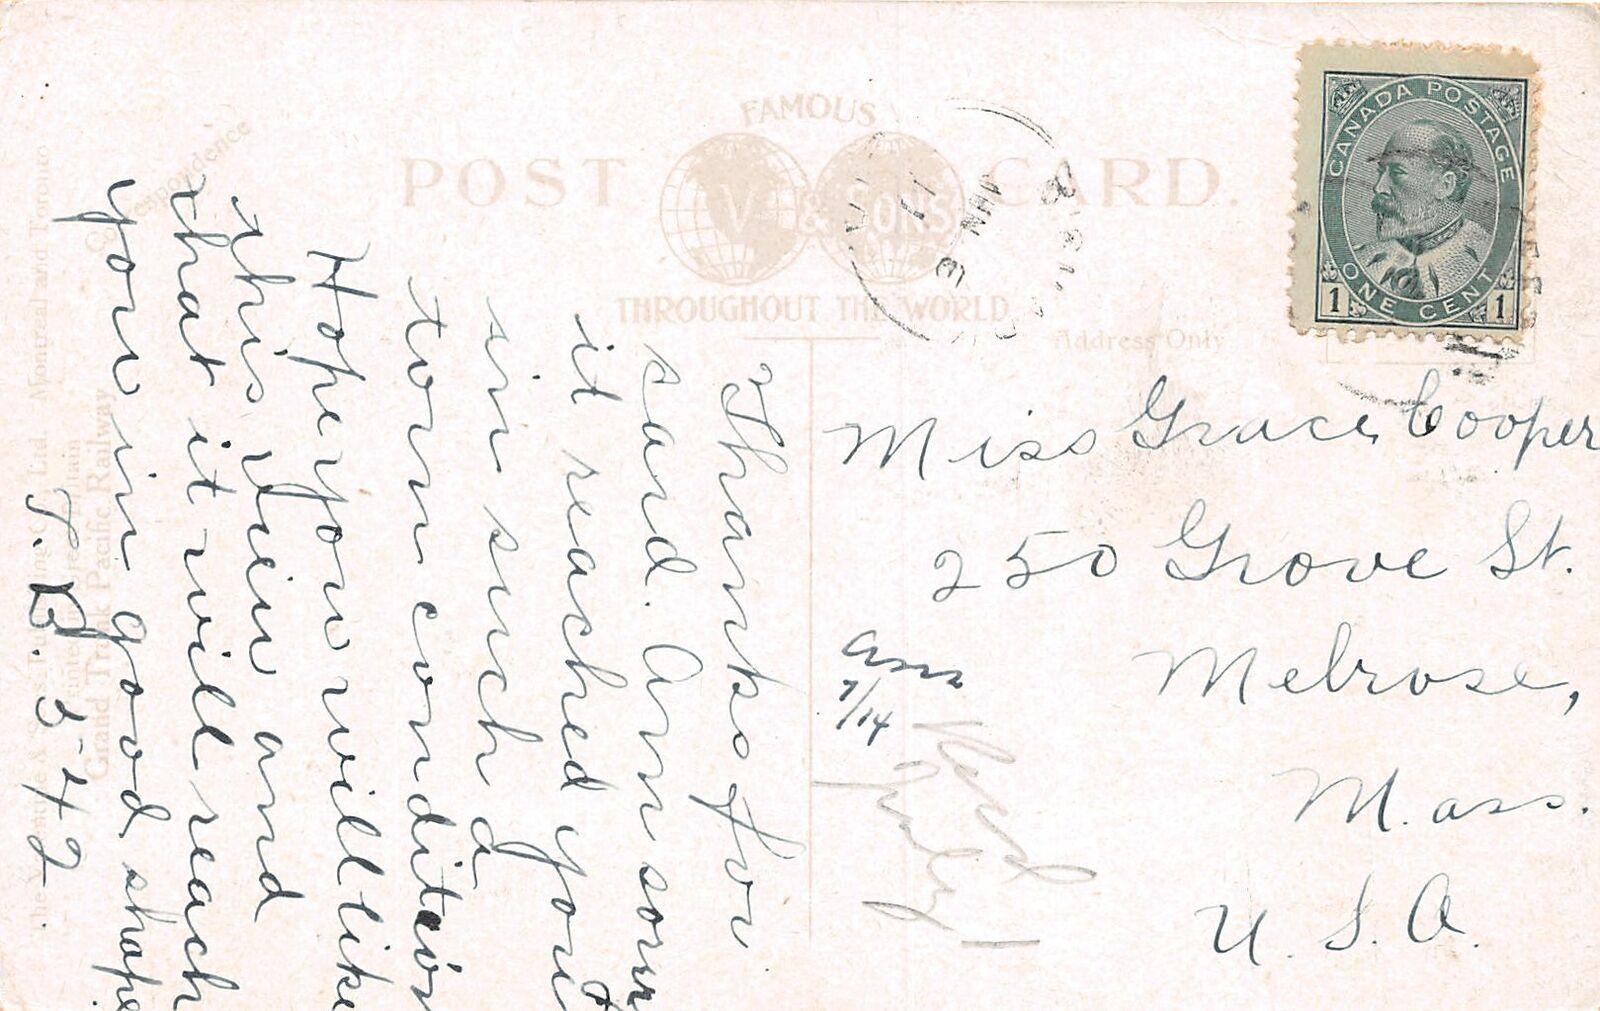 FAMOUS
POST CARD.
V & SONS
THROUGHOUT THE WORLD
Correspondence
Address Only
CANADA POSTAGE
ONE CENT
1 1
JUN 3
11
Thanks for
card. Am sorry
it reached you
in such a
torn condition
Hope you will like
this view and
that it will reach
you in good shape
T. B. 5-42
Grand Trunk Pacific Railway
Montreal and Toronto
Miss Grace Cooper
250 Grove St.
Melrose,
Mass.
U. S. A.
Ans
7/14
Recd
July 1